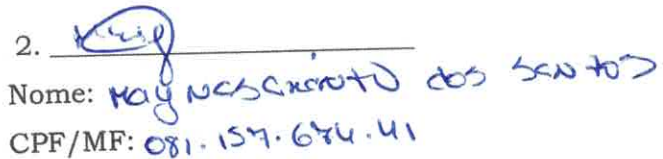 2.
Nome: May Nascimento dos Santos
CPF/MF: 081.157.674.41